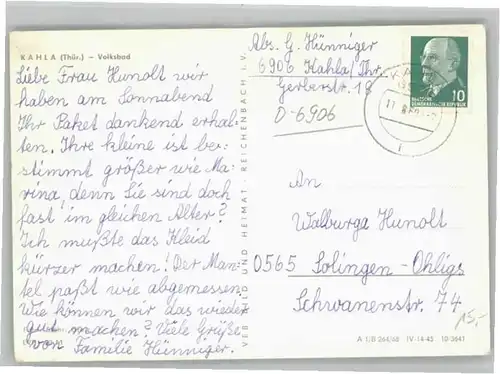 KAHLA (Thür.) – Volksbad
Liebe Frau Hunolt wir
haben am Sonnabend
Ihr Paket dankend erhal-
ten. Ihre kleine ist be-
stimmt größer wie Ma-
rina, denn Sie sind doch
fast im gleichen Alter?
Ich mußte das Kleid
kürzer machen! Der Man-
tel paßt wie abgemessen.
Wie können wir das wieder
gut machen? Viele Grüße
von Familie Hünniger.
VERLAG BILD UND HEIMAT REICHENBACH I. V.
Abs. G. Hünniger
6906 Kahla/Thr.
Gerberstr. 18
D-6906
10
DEUTSCHE
DEMOKRATISCHE REPUBLIK
An
Walburga Hunolt
0565 Solingen-Ohligs
Schwanenstr. 74
15,-
A 1/B 264/68 IV-14-45 10/3641